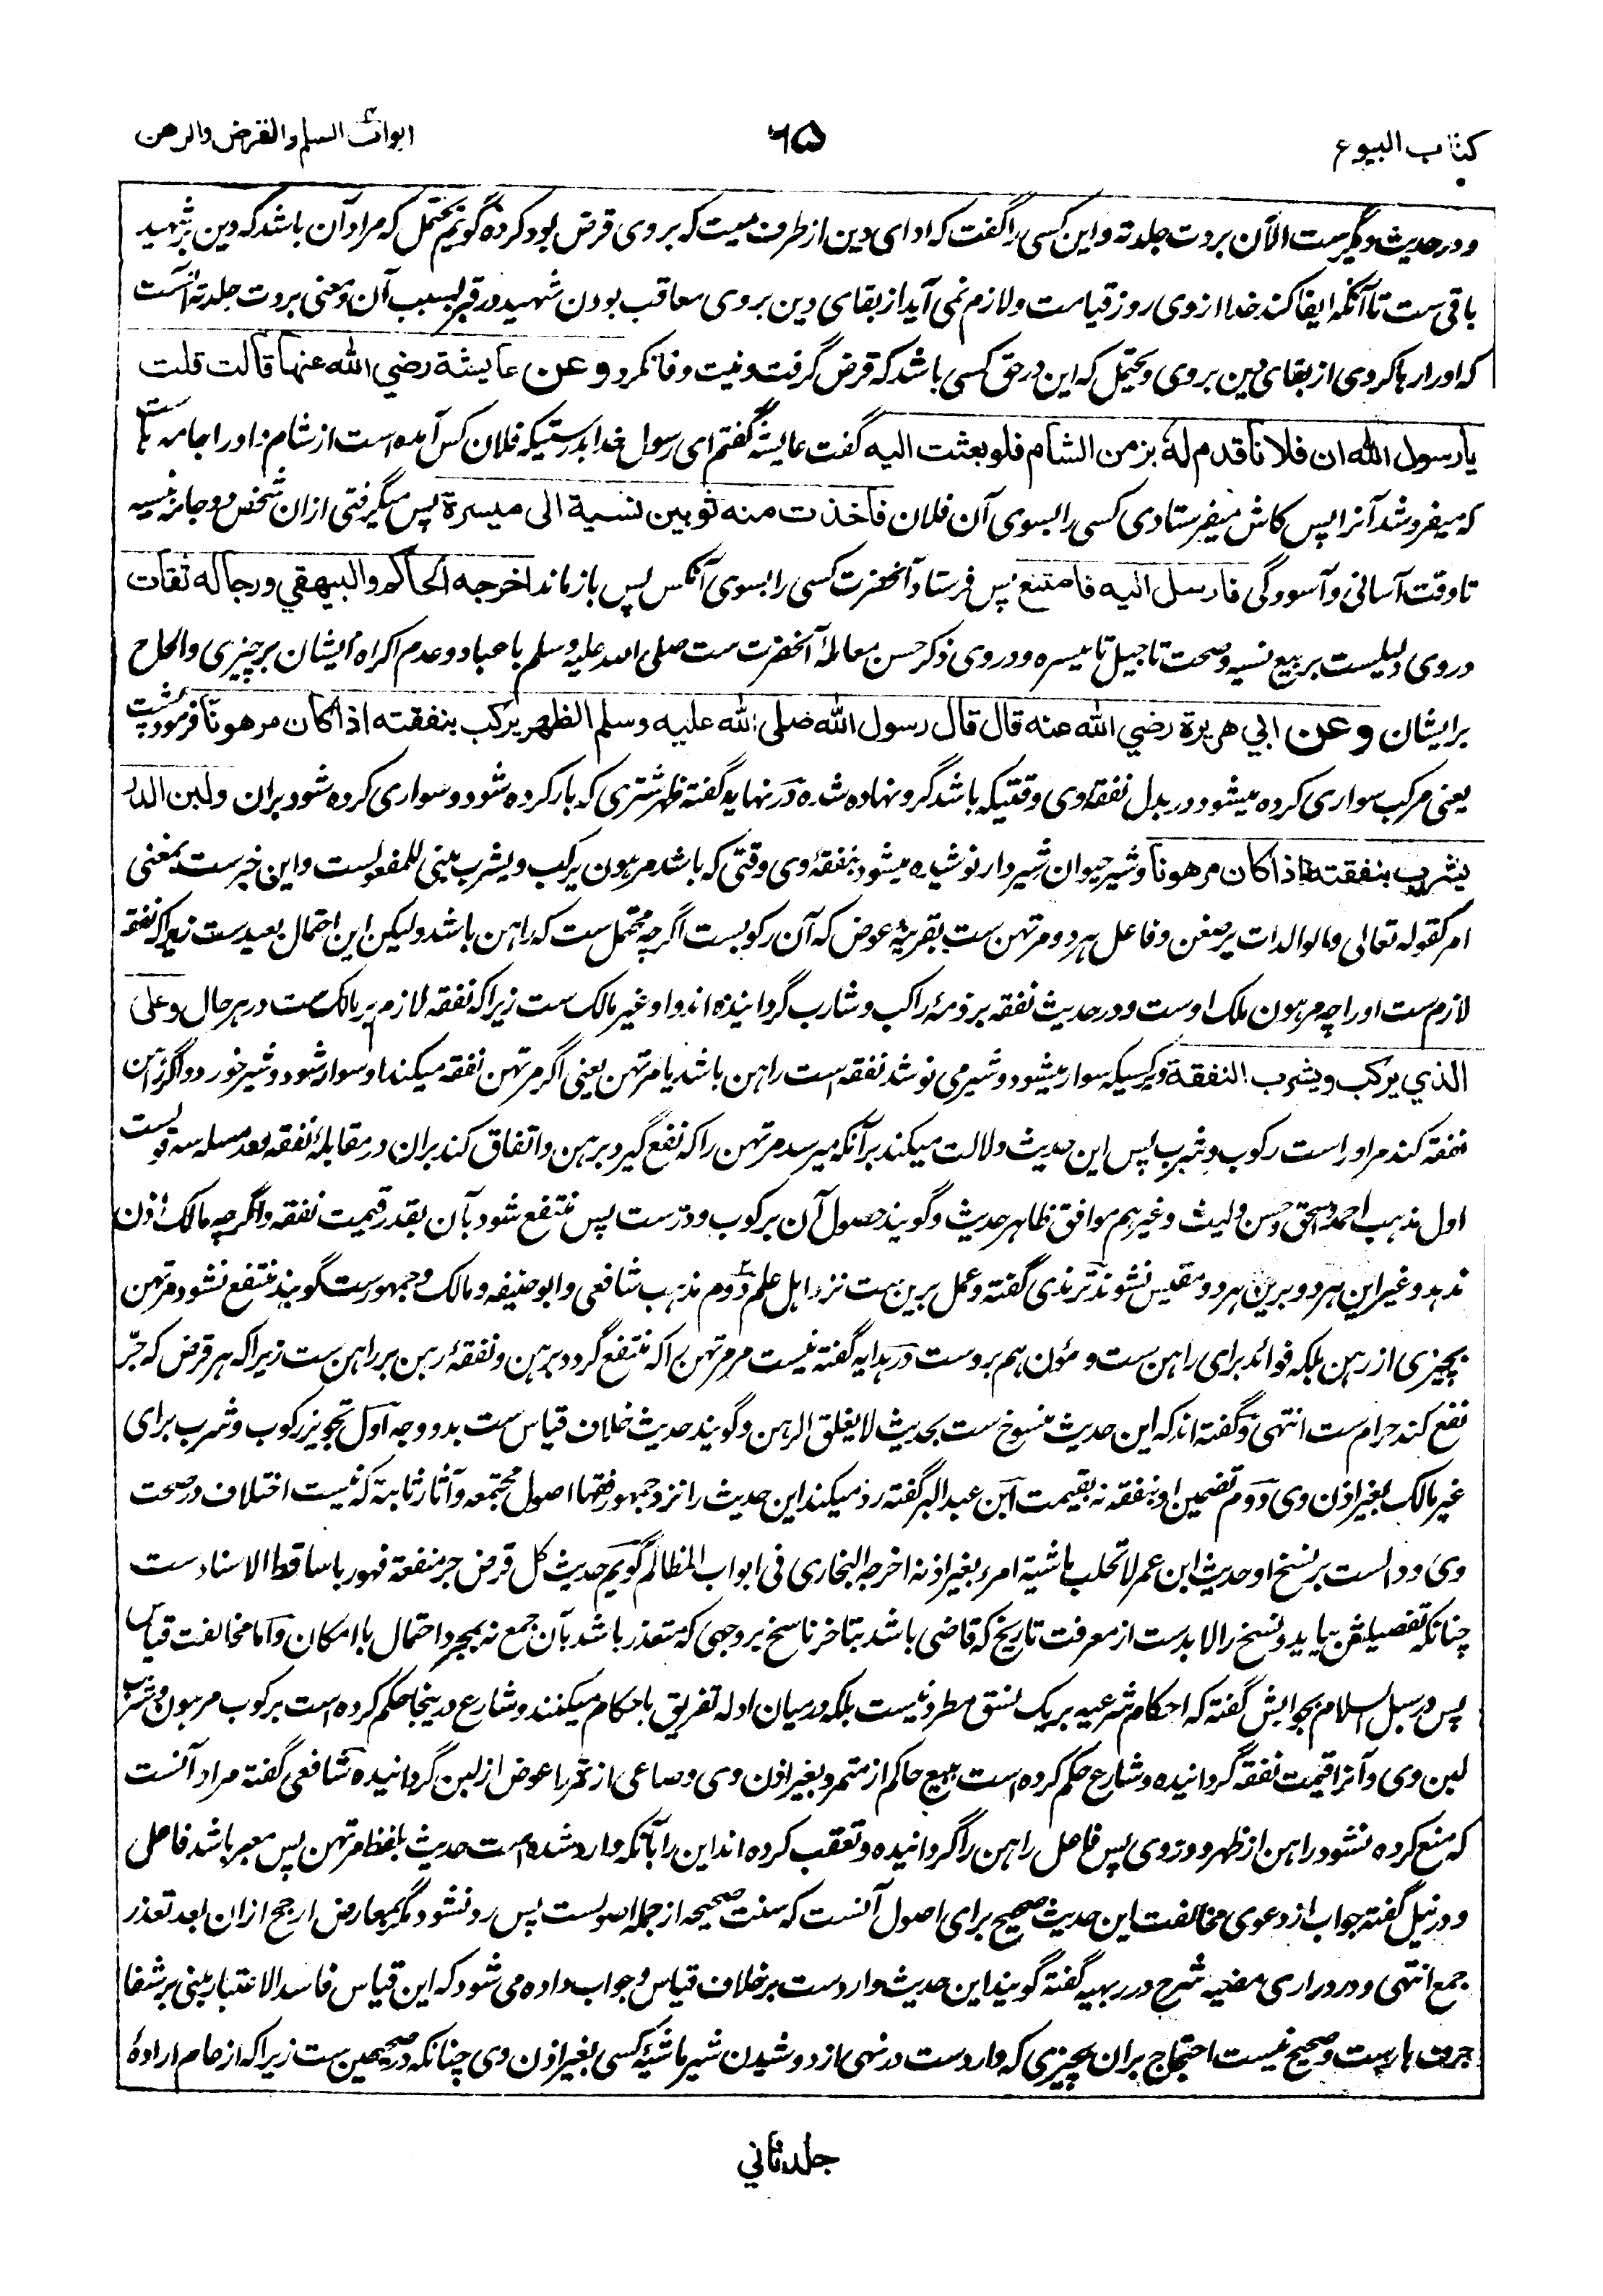 کتاب البیوع
۶۵
ابواب السلم والقرض والرهن
ودر حدیث دیگرست الآن بردت جلدته واین کسی را گفت که ادای دین از طرف میت که بروی قرض بود کرده گویم محتمل که مراد آن باشد که دین بر شهید
باقی ست تا آنکه ایفا کند خدا ازوی روز قیامت ولازم نمی آید از بقای دین بروی معاقب بودن شهید در قبر بسبب آن ومعنی بردت جلدته آنست
که او را رها کردی از بقای دین بروی ومحتمل که این در حق کسی باشد که قرض گرفت ونیت وفا نکرد وعن عایشة رضي الله عنها قالت قلت
یارسول الله ان فلانا قدم له بز من الشام فلو بعثت الیه گفت عایشه گفتم ای رسول خدا بدرستیکه فلان کس آمده است از شام واورا جامه هاست
که میفروشد آنرا پس کاش میفرستادی کسی را بسوی آن فلان فاخذت منه ثوبین نسیة الی میسرة پس میگرفتی ازان شخص دو جامه نسیه
تا وقت آسانی وآسودگی فارسل الیه فامتنع پس فرستاد آنحضرت کسی را بسوی آنکس پس باز ماند اخرجه الحاکم والبیهقي ورجاله ثقات
دروی دلیلست بر بیع نسیه وصحت تاجیل تا میسره ودروی ذکر حسن معاملهٔ آنحضرت ست صلی الله علیه وسلم با عباد وعدم اکراه ایشان بر چیزی والحاح
بر ایشان وعن ابي هریرة رضي الله عنه قال قال رسول الله صلی الله علیه وسلم الظهر یرکب بنفقته اذا کان مرهونا فرمود پشت
یعنی مرکب سواری کرده میشود در بدل نفقهٔ وی وقتیکه باشد گرو نهاده شده در نهایه گفته ظهر شتری که بار کرده شود وسواری کرده شود بران ولبن الدر
یشرب بنفقته اذا کان مرهونا وشیر حیوان شیردار نوشیده میشود بنفقهٔ وی وقتی که باشد مرهون یرکب ویشرب مبنی للمفعولست واین خبرست بمعنی
امر کقوله تعالی والوالدات یرضعن وفاعل هردو مرتهن ست بقرینهٔ عوض که آن رکوبست اگرچه محتمل ست که راهن باشد ولیکن این احتمال بعیدست زیراکه نفقه
لازم ست اورا چه مرهون ملک اوست ودر حدیث نفقه بر ذمهٔ راکب وشارب گردانیده اند واو غیر مالک ست زیراکه نفقه لازم بر مالک ست در هر حال وعلی
الذي یرکب ویشرب النفقة وبر کسیکه سوار میشود وشیر می نوشد نفقه است راهن باشد یا مرتهن یعنی اگر مرتهن نفقه میکند او سوار شود وشیر خورد واگر راهن
نفقه کند مراوراست رکوب وشرب پس این حدیث دلالت میکند بر آنکه میرسد مرتهن را که نفع گیرد برهن واتفاق کند بران در مقابلهٔ نفقه ومسله سه قولست
اول مذهب احمد واسحق وحسن ولیث وغیرهم موافق ظاهر حدیث وگویند حصول آن برکوب ودرست پس منتفع شود بآن بقدر قیمت نفقه واگرچه مالک اذن
ندهد وغیر این هردو برین هردو مقیس نشوند ترمذی گفته وعمل برین ست نزد اهل علم دوم مذهب شافعی وابوحنیفه ومالک وجمهورست گویند منتفع نشود مرتهن
بچیزی از رهن بلکه فوائد برای راهن ست ومؤن هم بروست در هدایه گفته نیست مر مرتهن را که منتفع گردد برهن ونفقهٔ رهن بر راهن ست زیراکه هر قرض که جرّ
نفع کند حرام ست انتهی وگفته اند که این حدیث منسوخ ست بحدیث لا یغلق الرهن وگویند حدیث خلاف قیاس ست بدو وجه اول تجویز رکوب وشرب برای
غیر مالک بغیر اذن وی دوم تضمین او بنفقه نه بقیمت ابن عبد البر گفته رد میکند این حدیث را نزد جمهور فقها اصول مجتمعه وآثار ثابتة که نیست اختلاف در صحت
وی ودالست بر نسخ او حدیث ابن عمر لا تحلب ماشیة امرء بغیر اذنه اخرجه البخاری فی ابواب المظالم گویم حدیث کل قرض جر منفعة فهو ربا ساقط الاسنادست
چنانکه تفصیلش بیاید ونسخ را لابدست از معرفت تاریخ که قاضی باشد بتاخر ناسخ بروجهی که متعذر باشد بآن جمع نه بمجرد احتمال با امکان واما مخالفت قیاس
پس در سبل السلام بجوابش گفته که احکام شرعیه بر یک نسق مطرد نیست بلکه درمیان ادله تفریق باحکام میکنند وشارع درینجا حکم کرده است برکوب مرهون وشرب
لبن وی وآنرا قیمت نفقه گردانیده وشارع حکم کرده است ببیع حاکم از متمرد بغیر اذن وی وصاعی از تمر را عوض از لبن گردانیده شافعی گفته مراد آنست
که منع کرده نشود راهن از ظهر ودر وی پس فاعل راهن را گردانیده وتعقب کرده اند این را بآنکه وارد شده است حدیث بلفظ مرتهن پس معبر باشد فاعل
ودر نیل گفته جواب از دعوی مخالفت این حدیث صحیح برای اصول آنست که سنت صحیحه از جمله اصولست پس رد نشود مگر بمعارض ارجح ازان بعد تعذر
جمع انتهی ودر دراری مضیه شرح درر بهیه گفته گویند این حدیث واردست برخلاف قیاس وجواب داده می شود که این قیاس فاسد الاعتبار مبنی بر شفا
جرف هارست وصحیح نیست احتجاج بران بچیزی که واردست در نهی از دوشیدن شیر ماشیهٔ کسی بغیر اذن وی چنانکه در صحیحین ست زیراکه از عام ارادهٔ
جلد ثاني